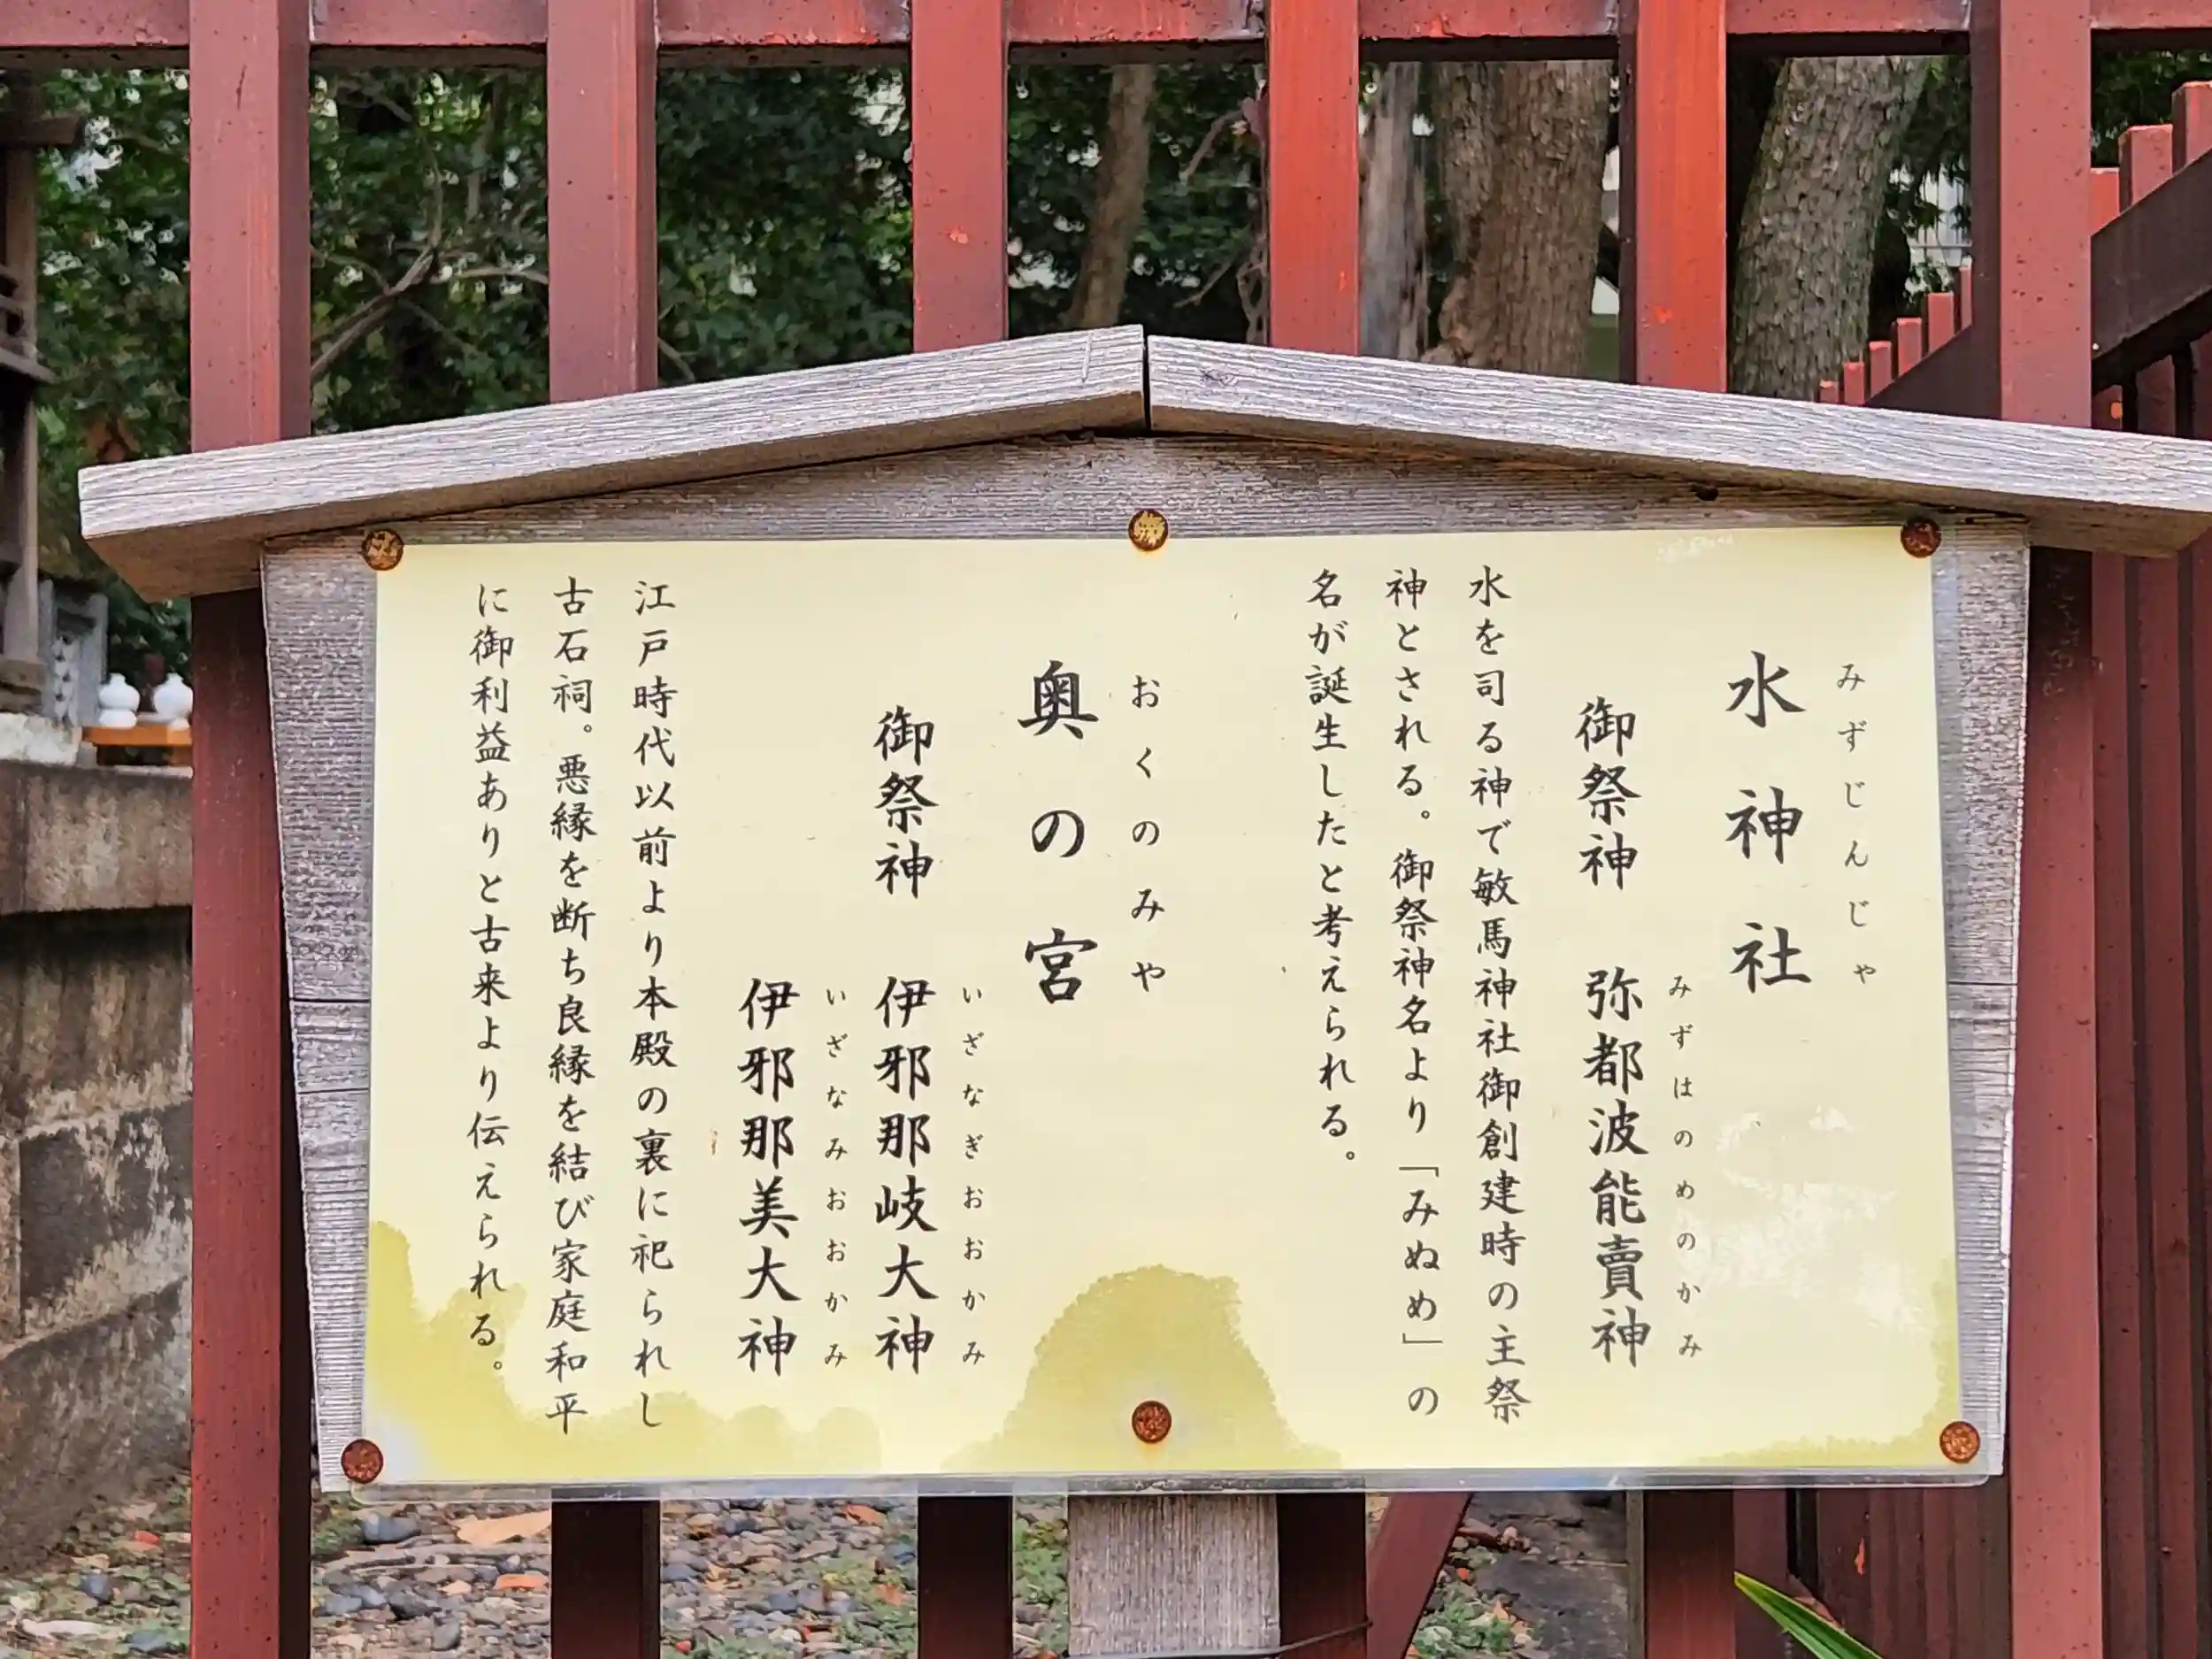 みずじんじゃ
水神社
みずはのめのかみ
御祭神　弥都波能賣神
水を司る神で敏馬神社御創建時の主祭
神とされる。御祭神名より「みぬめ」の
名が誕生したと考えられる。
おくのみや
奥の宮
いざなぎおおかみ
御祭神　伊邪那岐大神
いざなみおおかみ
伊邪那美大神
江戸時代以前より本殿の裏に祀られし
古石祠。悪縁を断ち良縁を結び家庭和平
に御利益ありと古来より伝えられる。